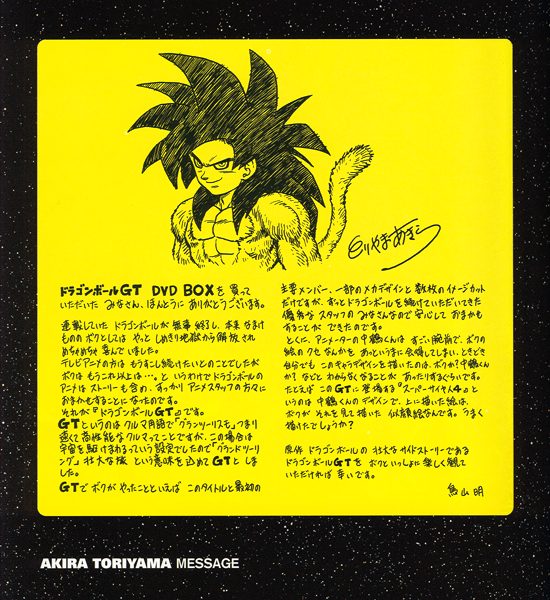 とりやまあきら
ドラゴンボールGT DVD BOXを買って
いただいた みなさん、ほんとうに ありがとうございます。
連載していた ドラゴンボールが無事終了し、本来なまけ
もの ボクとしては やっと しめきり地獄から解放され
めちゃめちゃ喜んでいました。
テレビアニメの方は もうすこし続けたいとのことでしたが
ボクは もうこれ以上は…。と いうわけでドラゴンボールの
アニメは ストーリーも含め、すっかり アニメスタッフの方々に
おまかせすることになったのです。
それが『ドラゴンボールGT』です。
GTというのは クルマ用語で「グランツーリスモ」、つまり
速くて高性能なクルマってことですが、この場合は
宇宙を駆けまわるっていう設定でしたので「グランドツーリ
ング」、壮大な旅 という意味を込めてGTとしま
した。
GTで ボクがやったことといえば このタイトルと最初の
主要メンバー、一部のメカデザインと数枚のイメージカット
だけですが、ずっとドラゴンボールを続けていただいてきた
優秀な スタッフの みなさんなので安心して おまかせ
することが できたのです。
とくに、アニメーターの中鶴くんは すごい腕前で、ボクの
絵の クセなんかも あっというまに会得してしまい、ときどき
自分でも このキャラデザインを描いたのは、ボクか？中鶴くん
か？などと わからなくなることが あったりするぐらいです。
たとえば このGTに登場する『スーパーサイヤ人4』と
いうのは中鶴くんのデザインで、上に描いた絵は、
ボクが それを見て描いた 似顔絵なんです。うまく
描けたでしょうか？
原作 ドラゴンボールの 壮大な サイドストーリーである
ドラゴンボールGTを ボクといっしょに楽しく観て
いただければ 幸いです。
鳥山明
AKIRA TORIYAMA MESSAGE